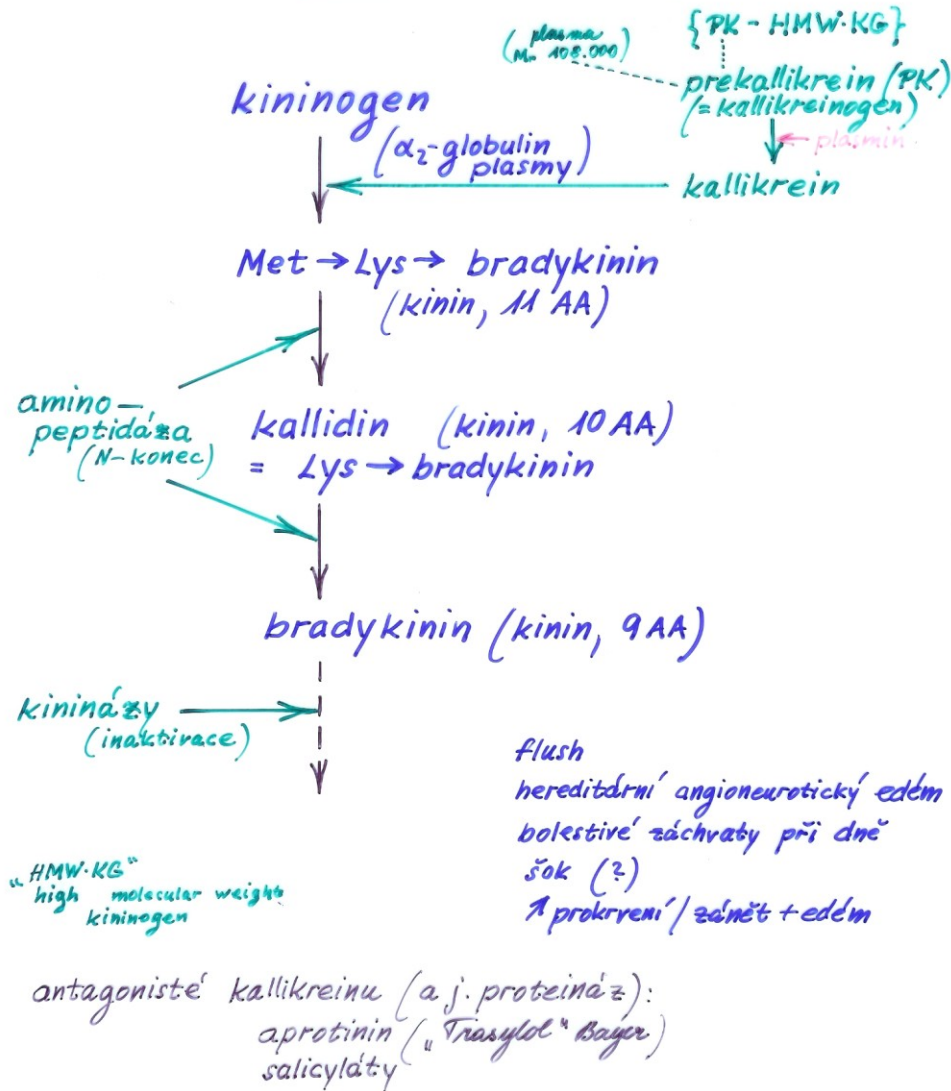 {PK - HMW·KG}
(plasma
Mr 108.000)
prekallikrein (PK)
(= kallikreinogen)
← plasmin
kallikrein
kininogen
(α₂-globulin
plasmy)
Met → Lys → bradykinin
(kinin, 11 AA)
amino-
peptidáza
(N-konec)
kallidin (kinin, 10 AA)
= Lys → bradykinin
bradykinin (kinin, 9 AA)
kininázy
(inaktivace)
flush
hereditární angioneurotický edém
bolestivé záchvaty při dně
šok (?)
↑ prokrvení / zánět + edém
„HMW·KG"
high molecular weight
kininogen
antagonisté kallikreinu (a j. proteináz):
aprotinin („Trasylol" Bayer)
salicyláty